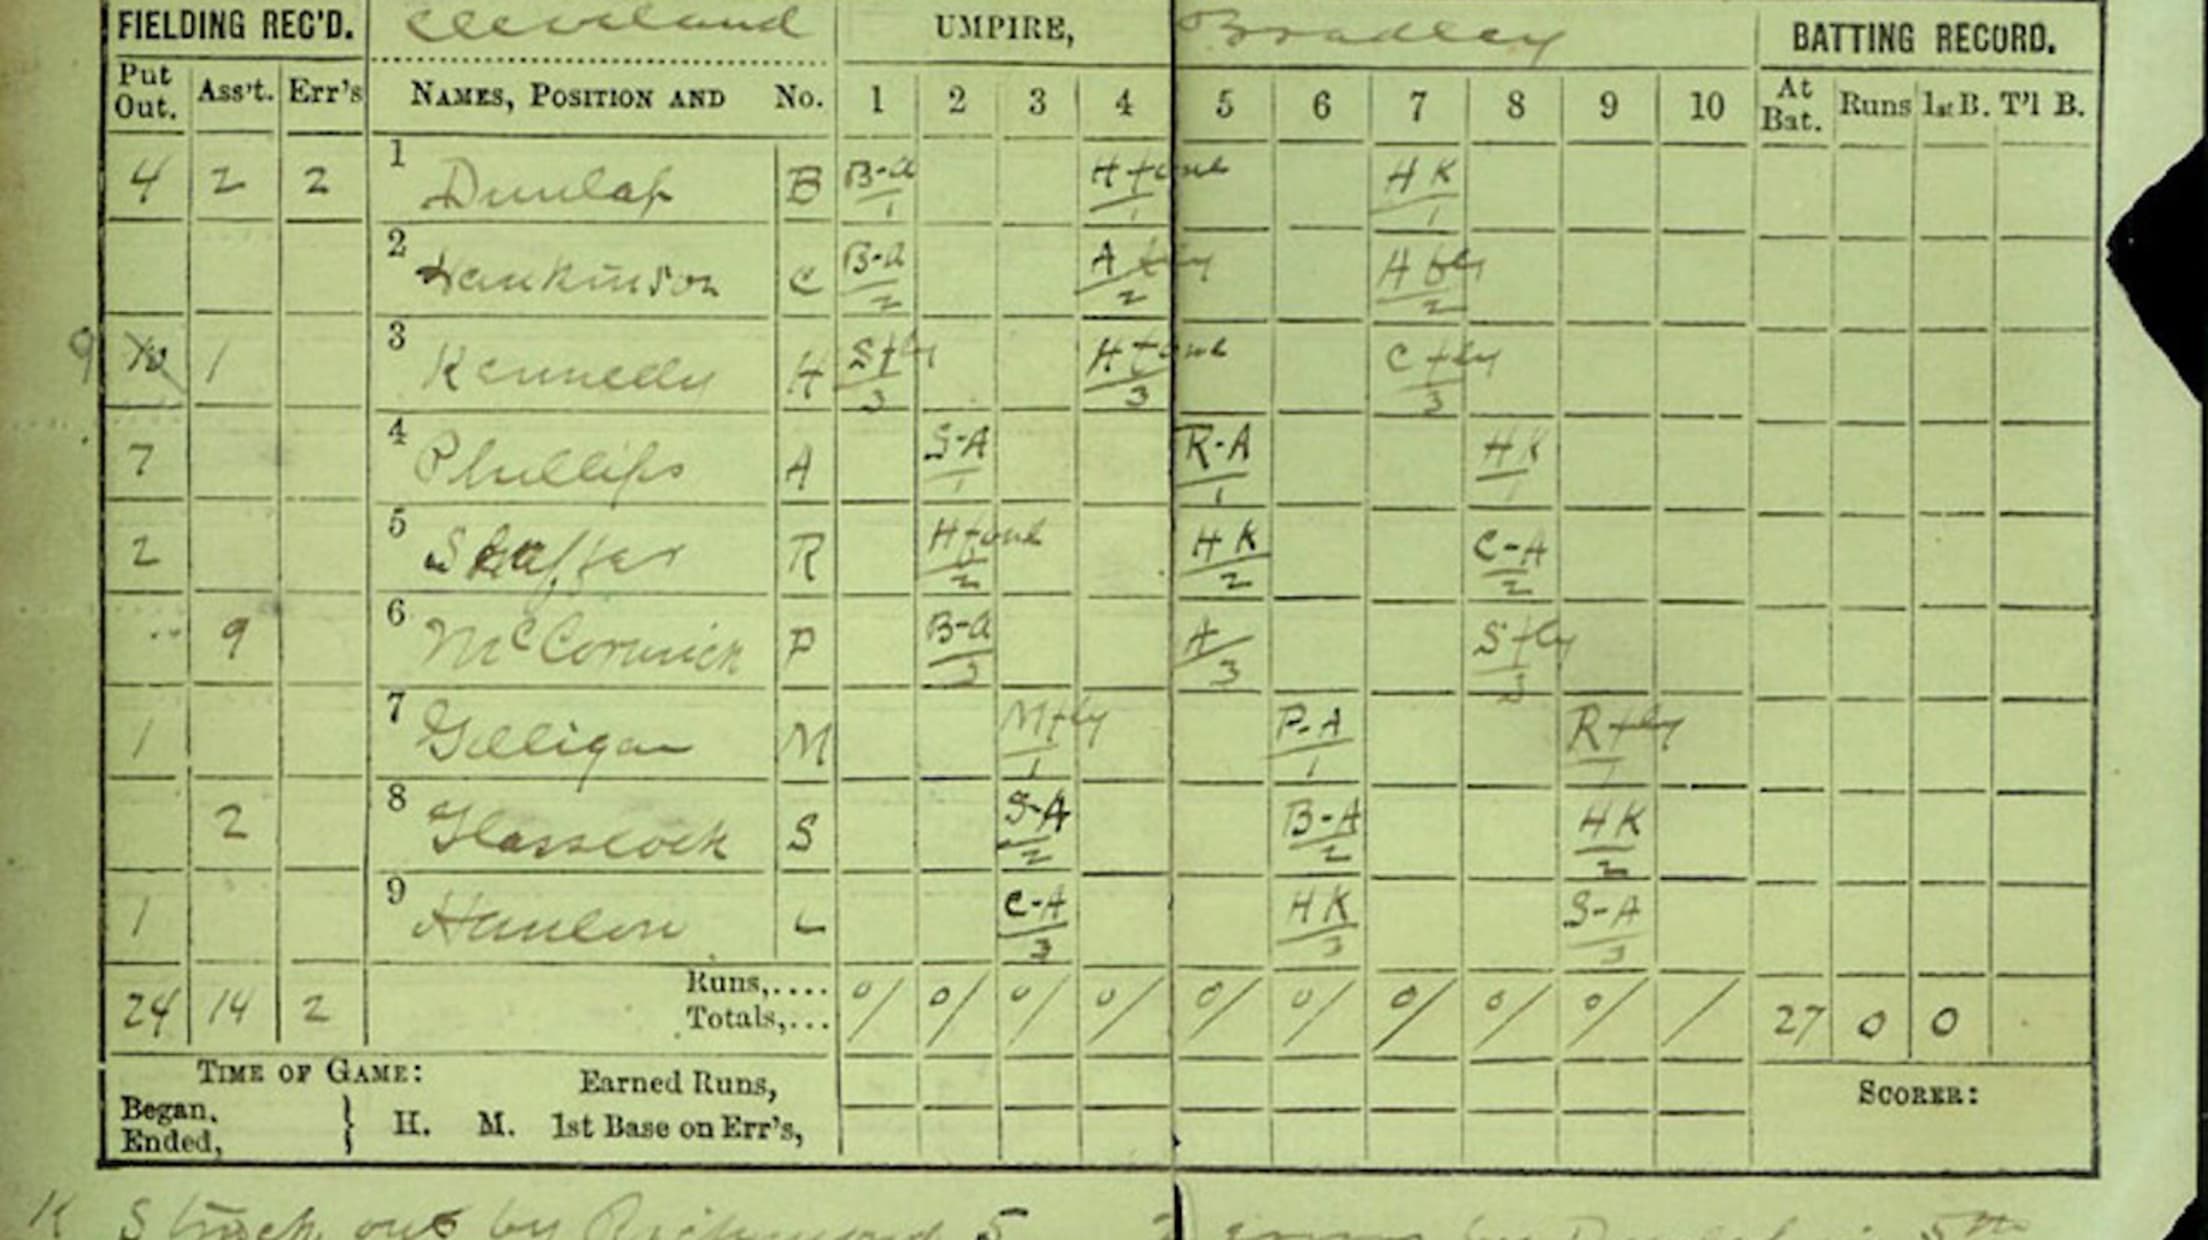 FIELDING REC'D. Cleveland UMPIRE, Bradley BATTING RECORD.
Put Out. Ass't. Err's NAMES, POSITION AND No. 1 2 3 4 5 6 7 8 9 10 At Bat. Runs 1st B. T'l B.
4 2 2 1 Dunlap B B-A 1 H foul 1 H K 1
2 Hankinson C B-A 2 A fly 2 H fly 2
9 10 1 3 Kennedy H S fly 3 H foul 3 C fly 3
7 4 Phillips A S-A 1 R-A 1 H K 1
2 5 Shaffer R H foul 2 H K 2 C-A 2
9 6 McCormick P B-A 3 A 3 S fly 3
1 7 Gilligan M M fly 1 P-A 1 R fly 1
2 8 Glasscock S S-A 2 B-A 2 H K 2
1 9 Hanlon L C-A 3 H K 3 S-A 3
24 14 2 Runs,.... Totals,... 0 0 0 0 0 0 0 0 0 27 0 0
TIME OF GAME: Earned Runs, SCORER:
Began, Ended, } H. M. 1st Base on Err's,
K Struck out by Richmond 5 2 errors by Dunlap in 5th